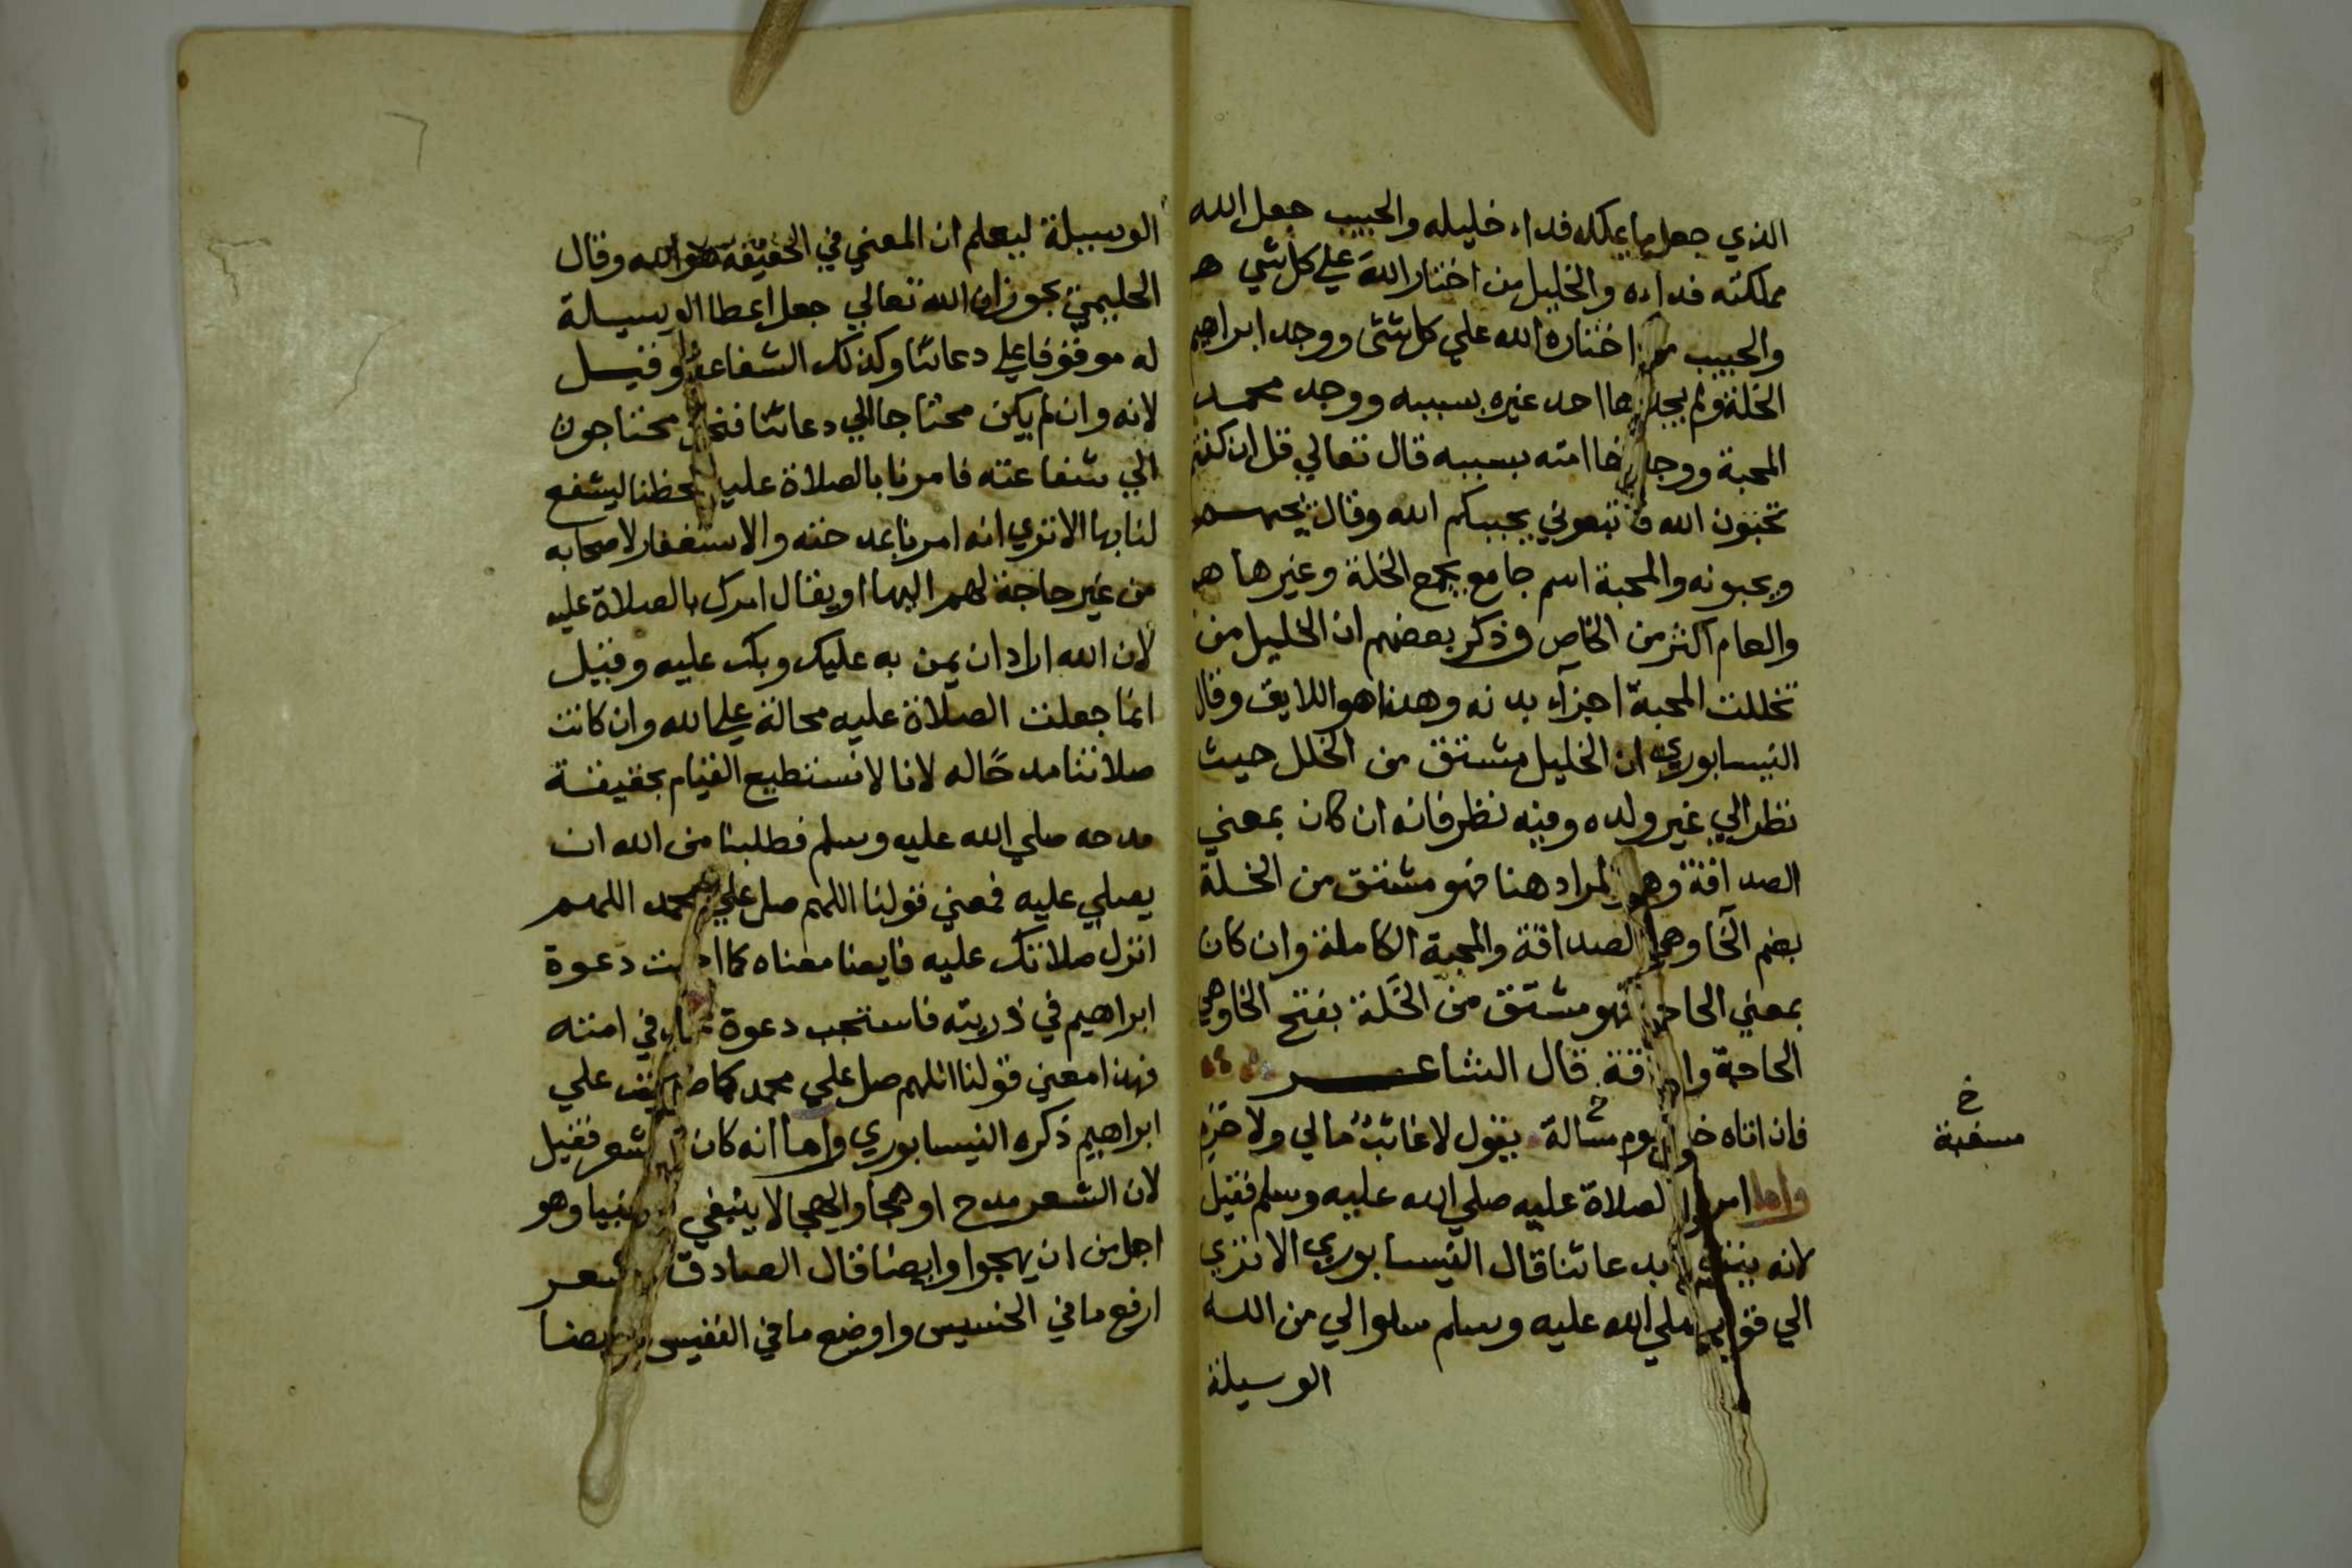 الذي جعل ما يملكه فداء خليله والحبيب جعل الله
مملكته فداءه والخليل من اختار الله علي كل شي
والحبيب من اختاره الله علي كل شئ ووجد ابراهيم
الخلة ولم يجد احد غيره بسببه ووجد محمد
المحبة ووجد امته بسببه قال تعالي قل ان كنتم
تحبون الله فاتبعوني يحببكم الله وقال يحبهم
ويحبونه والمحبة اسم جامع يجمع الخلة وغيرها
والعام اكثر من الخاص وذكر بعضهم ان الخليل من
تخللت المحبة اجزاء بدنه وهذا هو اللايق وقال
النيسابوري ان الخليل مشتق من الخلل حيث
نظر الي غير ولده وفيه نظر فانه ان كان بمعني
الصداقة وهو المراد هنا فهو مشتق من الخلة
بضم الخا وهي الصداقة والمحبة الكاملة وان كان
بمعني الحاجة فهو مشتق من الخلة بفتح الخا وهي
الحاجة وا قة قال الشاعر
فان اتاه خليل يوم مسألة يقول لا غائب مالي ولا حرم
خ
مسغبة
واما امرنا بالصلاة عليه صلي الله عليه وسلم فقيل
لانه ينتفع بدعائنا قال النيسابوري الا تري
الي قوله صلي الله عليه وسلم سلوا لي من الله
الوسيلة
الوسيلة ليعلم ان المعني في الحقيقة هو الله وقال
الحليمي يجوز ان الله تعالي جعل اعطا الوسيلة
له موقوفا علي دعائنا وكذلك الشفاعة وقيل
لانه وان لم يكن محتاجا الي دعائنا فنحن محتاجون
الي شفاعته فامرنا بالصلاة عليه لحظنا ليشفع
لنا بها الا تري انه امرنا بمد حته والاستغفار لاصحابه
من غير حاجة لهم اليها او يقال امرك بالصلاة عليه
لان الله اراد ان يمن به عليك وبك عليه وقيل
انما جعلت الصلاة عليه محالة علي الله وان كانت
صلاتنا مدحا له لانا لا نستطيع القيام بحقيقة
مدحه صلي الله عليه وسلم فطلبنا من الله ان
يصلي عليه فمعني قولنا اللهم صل علي محمد اللهم
انزل صلاتك عليه فايضا معناه كما اجبت دعوة
ابراهيم في ذريته فاستجب دعوة في امته
فهذا معني قولنا اللهم صل علي محمد كما صليت علي
ابراهيم ذكره النيسابوري واما انه كان شعر فقيل
لان الشعر مدح او هجا والهجا لا ينبغي وهو
اجل من ان يهجوا وايضا قال الصادق شعر
ارفع ما في الخسيس واوضع ما في النفيس وايضا